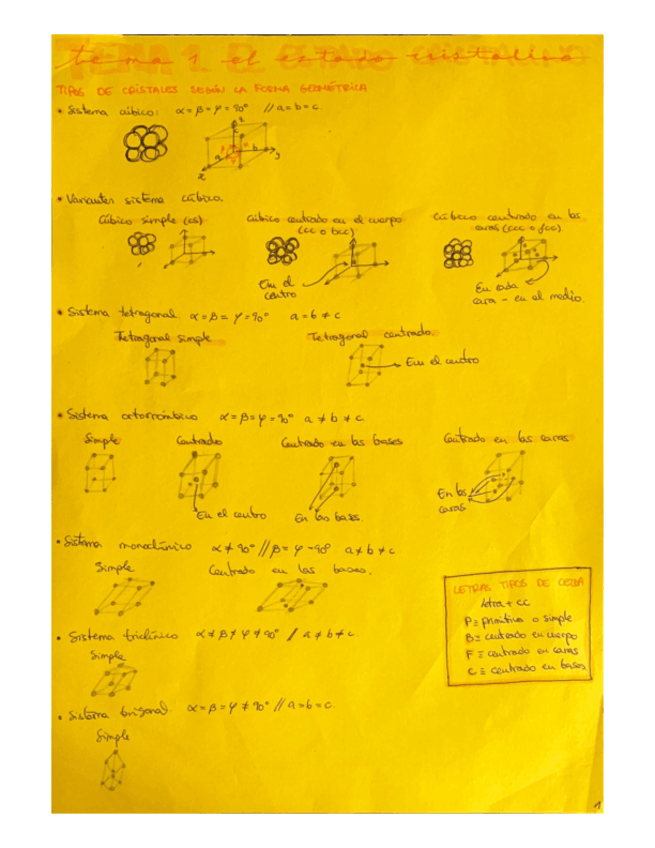 TEMA 1. EL ESTADO CRISTALINO
tema 1 el estado cristalino
TIPOS DE CRISTALES SEGÚN LA FORMA GEOMÉTRICA
• Sistema cúbico: α = β = γ = 90° // a = b = c.
z
a b y
x
• Variantes sistema cúbico.
Cúbico simple (cs) Cúbico centrado en el cuerpo Cúbico centrado en las
(cc o bcc) caras (ccc o fcc)
En el
centro
En cada
cara - en el medio.
• Sistema tetragonal α = β = γ = 90° a = b ≠ c
Tetragonal simple Tetragonal centrado.
En el centro
• Sistema ortorrómbico α = β = γ = 90° a ≠ b ≠ c
Simple Centrado Centrado en las bases Centrado en las caras
En las
caras
En el centro En las bases.
• Sistema monoclínico α ≠ 90° // β = γ = 90° a ≠ b ≠ c
Simple Centrado en las bases.
• Sistema triclínico α ≠ β ≠ γ ≠ 90° // a ≠ b ≠ c.
Simple
• Sistema trigonal α = β = γ ≠ 90° // a = b = c
Simple
LETRAS TIPOS DE CELDA
letra + cc
P ≡ primitiva o simple
B ≡ centrado en cuerpo
F ≡ centrado en caras
C ≡ centrado en bases
1